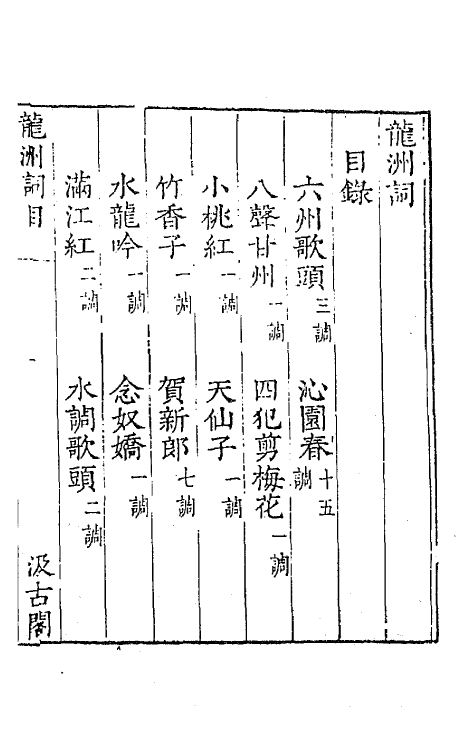 龍洲詞
目錄
六州歌頭三調 沁園春十五調
八聲甘州一調 四犯剪梅花一調
小桃紅一調 天仙子一調
竹香子一調 賀新郎七調
水龍吟一調 念奴嬌一調
滿江紅二調 水調歌頭二調
龍洲詞目 汲古閣